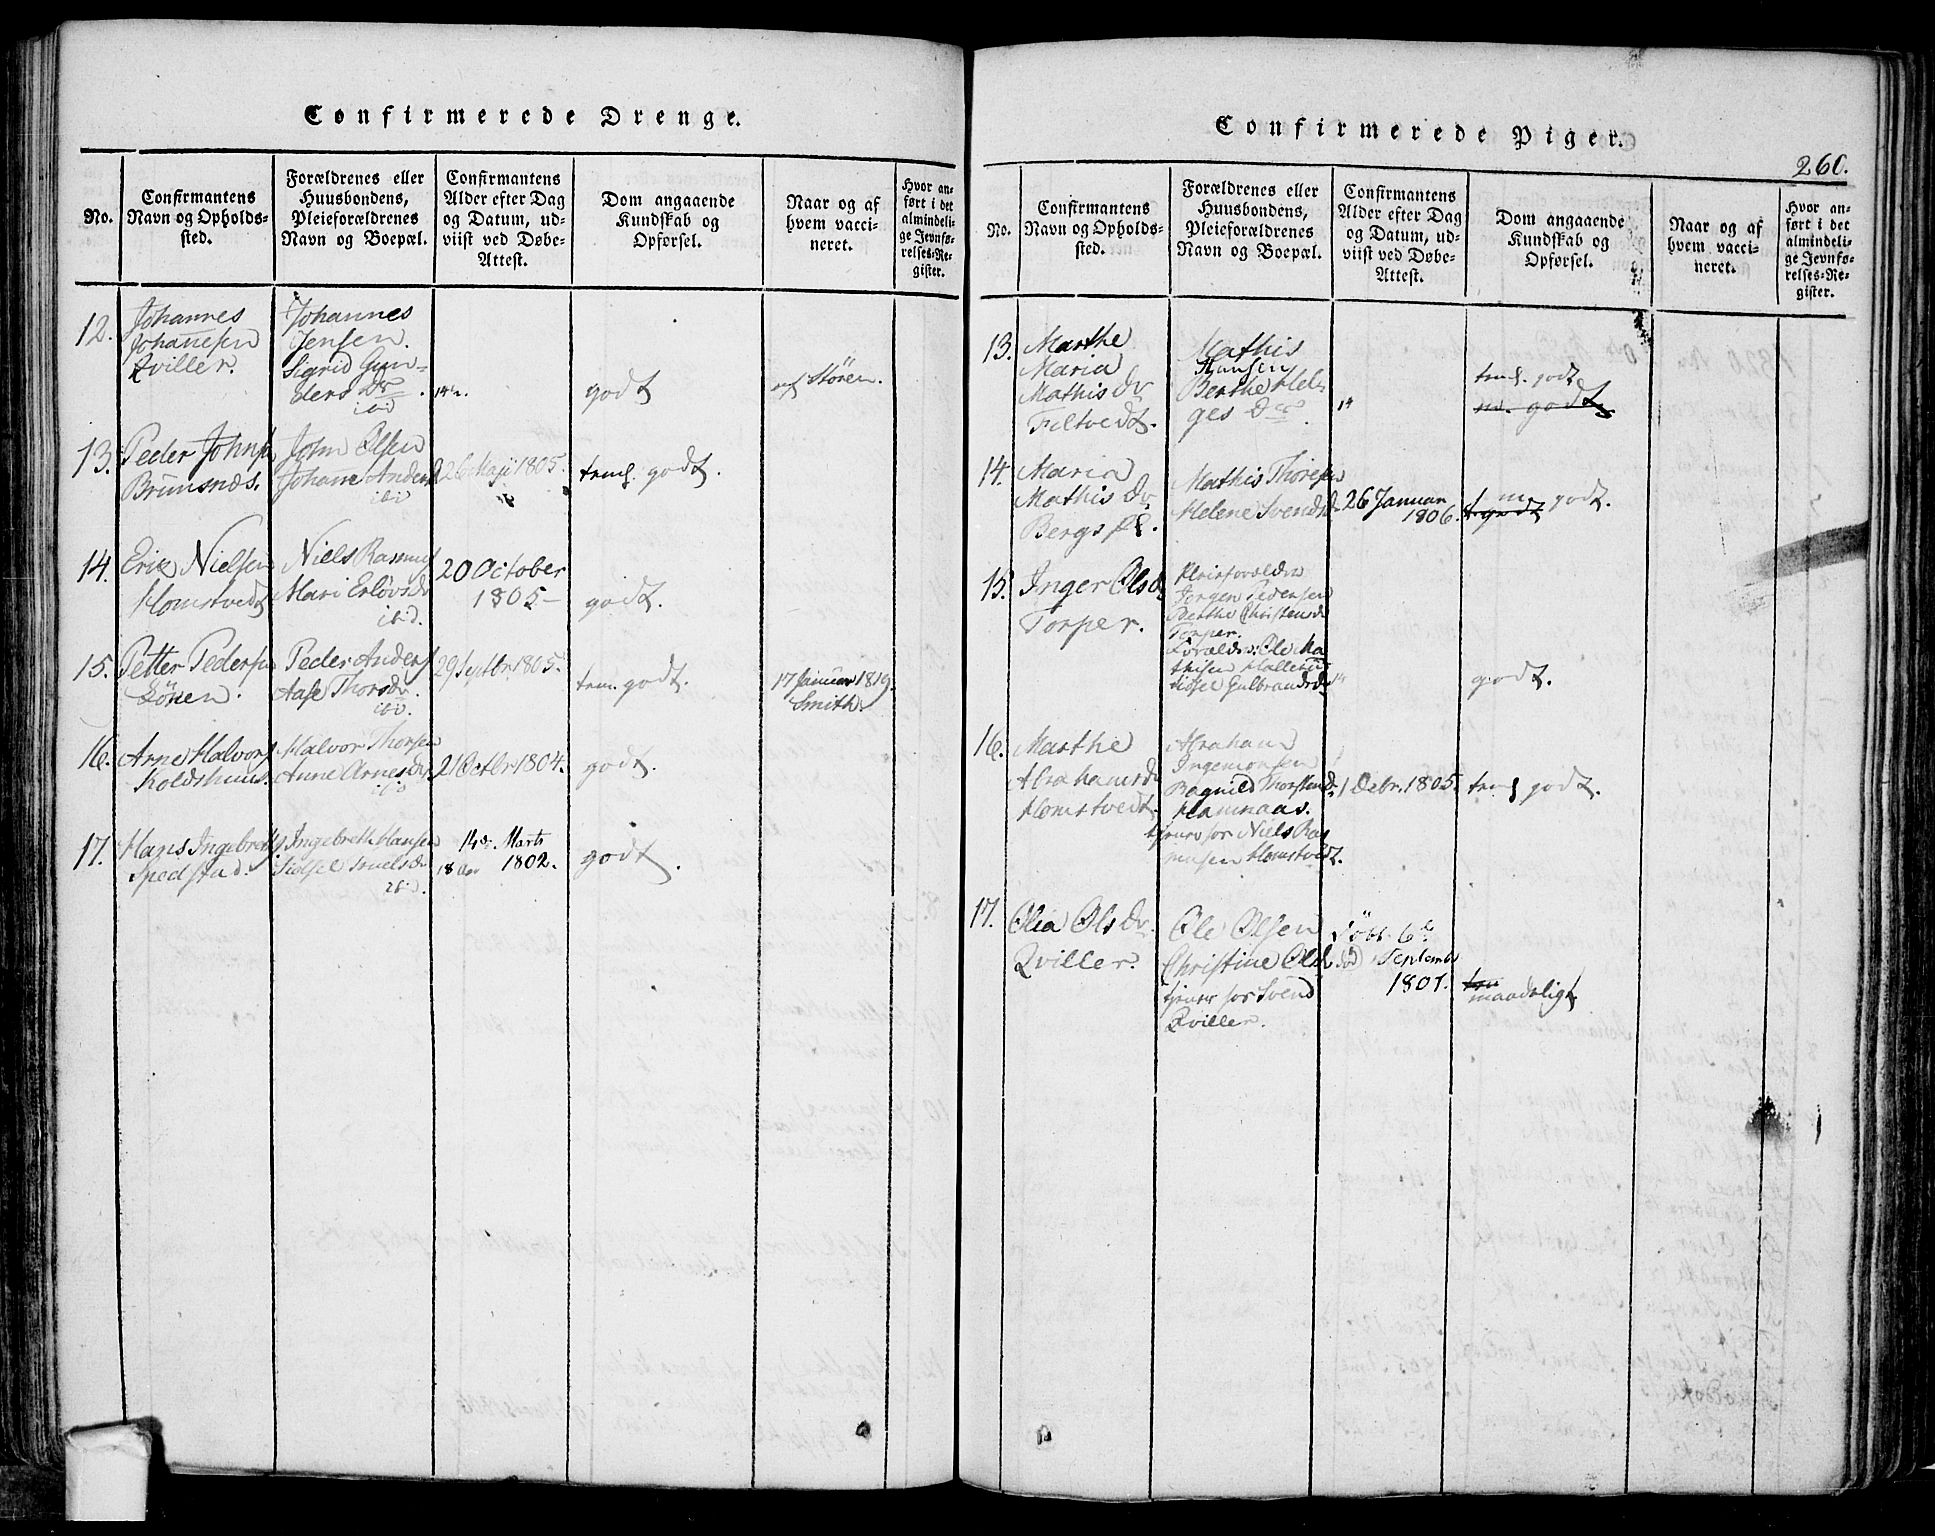 Confirmerede Drenge.
No.
Confirmantens
Navn og Opholds-
sted.
Forældrenes eller
Huusbondens,
Pleieforældrenes
Navn og Boepæl.
Confirmantens
Alder efter Dag
og Datum, ud-
viist ved Døbe-
Attest.
Dom angaaende
Kundskab og
Opførsel.
Naar og af
hvem vacci-
neret.
Hvor an-
ført i det
almindeli-
ge Jevnfø-
relses-Re-
gister.
12.
Johannes
Johannesen
Qviller.
Johannes
Jensen.
Sigrid Gun-
ders Dr.
ibid
godt
af Stören.
13.
Peder Johns
Brunsnæs.
John Olsen
Johanne Anders
ibi
26 Maji 1805.
teml. godt.
14.
Erik Nielsen
Homstvedt
Niels Rasmus
Mari Erlövsdr
ibid.
20 October
1805 –
godt.
15.
Petter Pedersen
Lönen.
Peder Anders
Aase Thorsdr.
ibi.
29 Septbr. 1805.
tem. godt.
17 Januar 1819.
Smith.
16.
Arne Halvors
Koldshuus.
Halvor Thorsen
Anne Arnesdr
21 Octbr. 1804.
godt.
17.
Hans Ingebreths
Spedstad.
Ingebreth Hansen
Siössel Truelsdr
ibid.
14de Marts
18 Aar 1802.
godt.
Confirmerede Piger.
260.
No.
Confirmantens
Navn og Opholds-
sted.
Forældrenes eller
Huusbondens,
Pleieforældrenes
Navn og Boepæl.
Confirmantens
Alder efter Dag
og Datum, ud-
viist ved Døbe-
Attest.
Dom angaaende
Kundskab og
Opførsel.
Naar og af
hvem vacci-
neret.
Hvor an-
ført i det
almindeli-
ge Jevnfø-
relses-Re-
gister.
13.
Marthe
Maria
Mathisdr
Filtvedt.
Mathis
Hansen
Berthe Hel-
ges Dr.
14
teml. godt
godt
14.
Maria
Mathisdr
Bergs Pl.
Mathis Thoresen
Helene Svendsdr
26 Januar
1806.
m godt.
t. godt
15.
Inger Olsdr
Torper.
Pleieforældre
Jörgen Pedersen
Berthe Christensdr
Torper.
Forældre: Ole Ma-
thisen
Siössel Gulbrandsdr
14
godt.
16.
Marthe
Abrahamsdr
Homstvedt.
Abraham
Ingemonsen
Ragnild Thorstensdr
Hamnaas.
tjener for Niels Ras-
musen Homstvedt.
1 Debr. 1805.
teml godt.
17.
Olea Olsdr.
Qviller.
Ole Olsen
Christine Olsdr
tjener for Svend
Qviller.
Döbt 6te
September
1801.
maadeligt